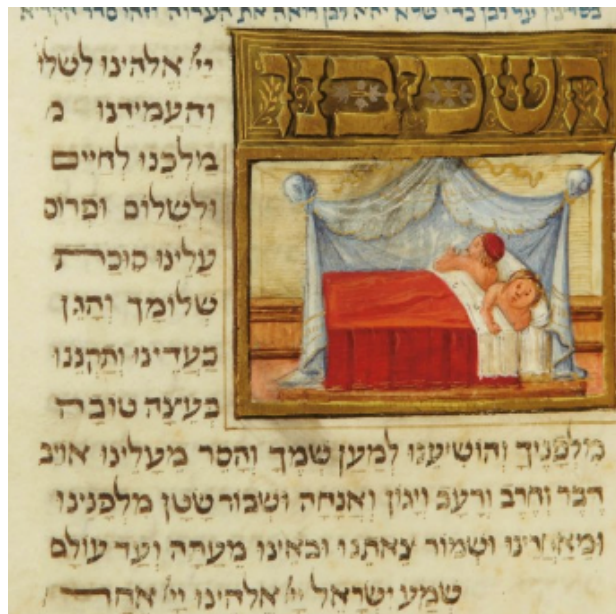 כדי שלא יהא לבו רואה את הערוה וזהו סדר הקריא
השכיבנו
יי' אלהינו לשלו
והעמידנו מ
מלכנו לחיים
ולשלום ופרוס
עלינו סוכת
שלומך והגן
בעדינו ותקננו
בעצה טובה
מלפניך והושיענו למען שמך והסר מעלינו אויב
דבר וחרב ורעב ויגון ואנחה ושבור שטן מלפנינו
ומאחרינו ושמור צאתנו ובאינו מעתה ועד עולם
שמע ישראל יי' אלהינו יי' אחד